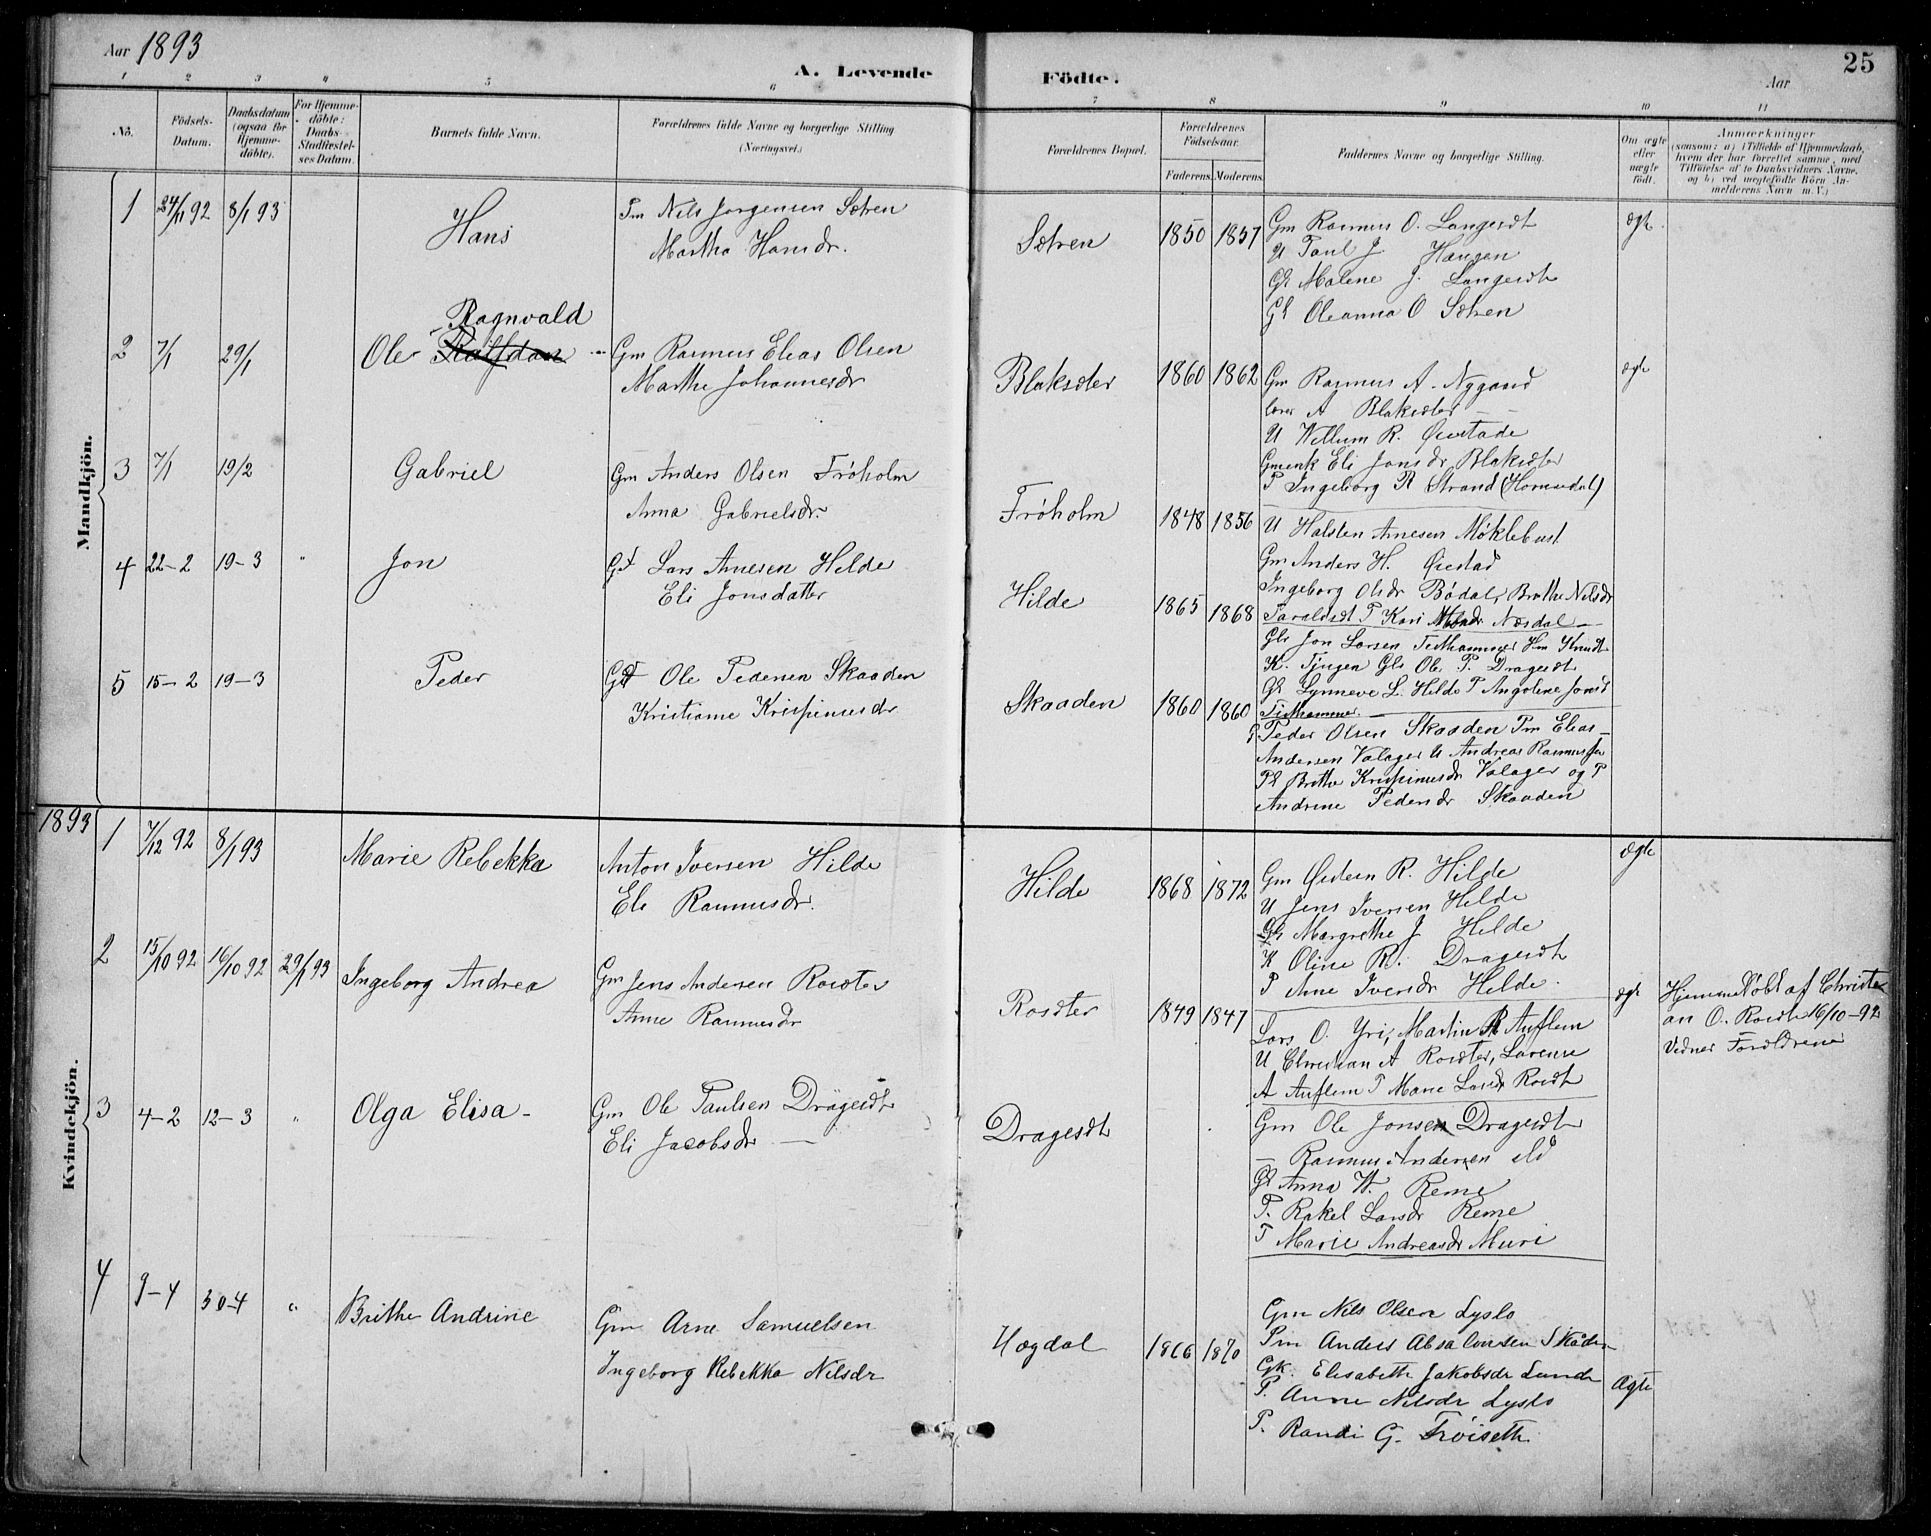 Aar 1893
A. Levende Födte.
Aar
25
1 2 3 4 5 6 7 8 9 10 11
No.
Födsels-Datum.
Daabsdatum (ogsaa for Hjemme-döbte).
For Hjemme-döbte: Daabs-Stadfæstel-ses Datum.
Barnets fulde Navn.
Forældrenes fulde Navne og borgerlige Stilling (Næringsvei.)
Forældrenes Bopæl.
Forældrenes Födselsaar.
Faderens. Moderens.
Faddernes Navne og borgerlige Stilling.
Om ægte eller uægte födt.
Anmærkninger
(saasom: a) i Tilfælde af Hjemmedaab, hvem der har forrettet samme, med Tilföielse af to Daabsvidners Navne, og b) ved uægtefödte Börn Anmelderens Navn m. V.)
Mandkjön.
1 24/11 92 8/1 93 Hans
Pm Nils Jorgensen Sætren
Martha Hansdr.
Sætren 1850 1857
Gm Rasmus O. Langesæt
U Paul J Haugen
Gk Malene J. Langesæt
Gk Oleanna O Sætren
ægte
2 7/1 29/1 Ole Ragnvald Halfdan
Gm Rasmus Elias Olsen
Marthe Johannesdr
Blaksæter 1860 1862
Gm Rasmus A. Nygaard
lærer A Blaksæter
U Willum R. Øvstade
Gmenk Eli Jonsdr Blaksæter
P Ingeborg R Strand (Hornindal)
ægte
3 7/1 19/2 Gabriel
Gm Anders Olsen Frøholm
Anna Gabrielsdr.
Frøholm 1848 1856
U Halsten Arnesen Møklebust
Gm Anders H. Øvstad
Ingeborg Olsdr Bødal, Brothe Nilsdr
Taraldset P Kari Monsdr Næsdal
4 22-2 19-3 " Jon
Lars Arnesen Hilde
Eli Jonsdatter
Hilde 1865 1868
Gk Jon Larsen Tisthammer Hm Knudt
K. Tjugen Gk Ole P. Dragesæt
Gk Synneve L. Hilde P Angolene Jonsd
Tisthammer
5 15-2 19-3 Peder
Ole Pedersen Skaaden
Kristiane Krispinusdr
Skaaden 1860 1860
Peder Olsen Skaaden Pm Elias
Andersen Valager U Andreas Rasmus
Pk Brithe Krispinusdr Valager og P
Andrine Pedersdr Skaaden
1893
Kvindekjön.
1 7/12 92 8/1 93 Marie Rebekka
Anton Iversen Hilde
Eli Rasmusdr.
Hilde 1868 1872
Gm Østen R. Hilde
U Jens Iversen Hilde
Gk Margrethe J Hilde
K Oline R. Dragesæt
P Ane Iversdr Hilde.
ægte
2 15/10 92 16/10 92 29/1 93 Ingeborg Andrea
Gm Jens Andersen Rosæter
Anne Rasmusdr
Rosæter 1849 1847
Lars O. Yri, Martin R Auflem
U Christian A Rosæter, Lovense
A Auflem P Marie Larsdr Rosæt
ægte
Hjemmedøbt af Christi
an O. Rosæt 16/10-92
Vidner Forældrene
3 4-2 12-3 " Olga Elisa
Gm Ole Paulsen Dragesæt
Eli Jacobsdr
Dragesæt
Gm Ole Jonsen Dragesæt
Rasmus Andersen
Gk Anna W. Reme
P. Rakel Larsdr Reme
P Marie Andreasdr Muri
4 9-4 30-4 " Brithe Andrine
Gm Arne Samuelsen
Ingeborg Rebekka Nilsdr
Hægdal 1866 1870
Gm Nils Olsen Lyslo
Pm Anders Absalonsen Skåden
Gk. Elisabeth Jakobsdr Lunde
P. Anne Nilsdr Lyslo
P. Randi G. Frøiseth
Ægte